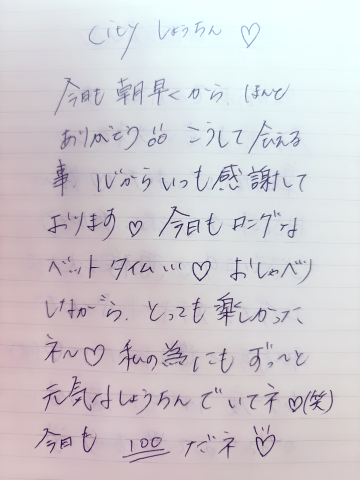 City しょうちん ♡
今日も 朝早くから、ほんと
ありがとう!! こうして会える
事、心からいつも感謝して
おります♡ 今日も ロングな
ベットタイム…♡ おしゃべり
しながら、とっても楽しかった
ネ〜♡ 私の為にも ずっ〜と
元気なしょうちんでいてネ♡(笑)
今日も 100 だネ♡